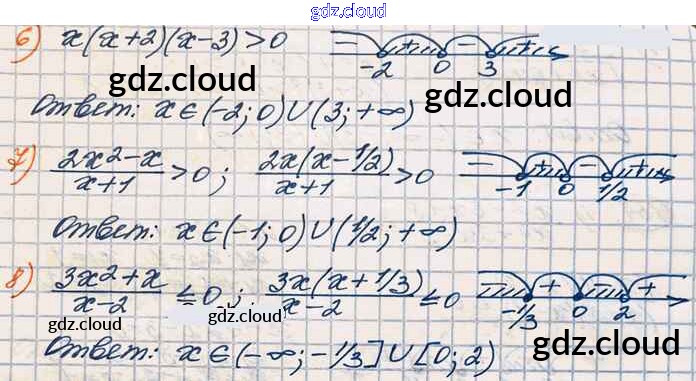 gdz.cloud
6) x(x+2)(x-3)>0 − + − + -2 0 3
gdz.cloud gdz.cloud
Ответ: x∈(-2;0)∪(3;+∞)
7) (2x²-x)/(x+1)>0; 2x(x-1/2)/(x+1)>0 − + − + -1 0 1/2
Ответ: x∈(-1;0)∪(1/2;+∞)
8) (3x²+x)/(x-2)≤0; 3x(x+1/3)/(x-2)≤0 − + − + -1/3 0 2
gdz.cloud gdz.cloud gdz.cloud
Ответ: x∈(-∞;-1/3]∪[0;2)